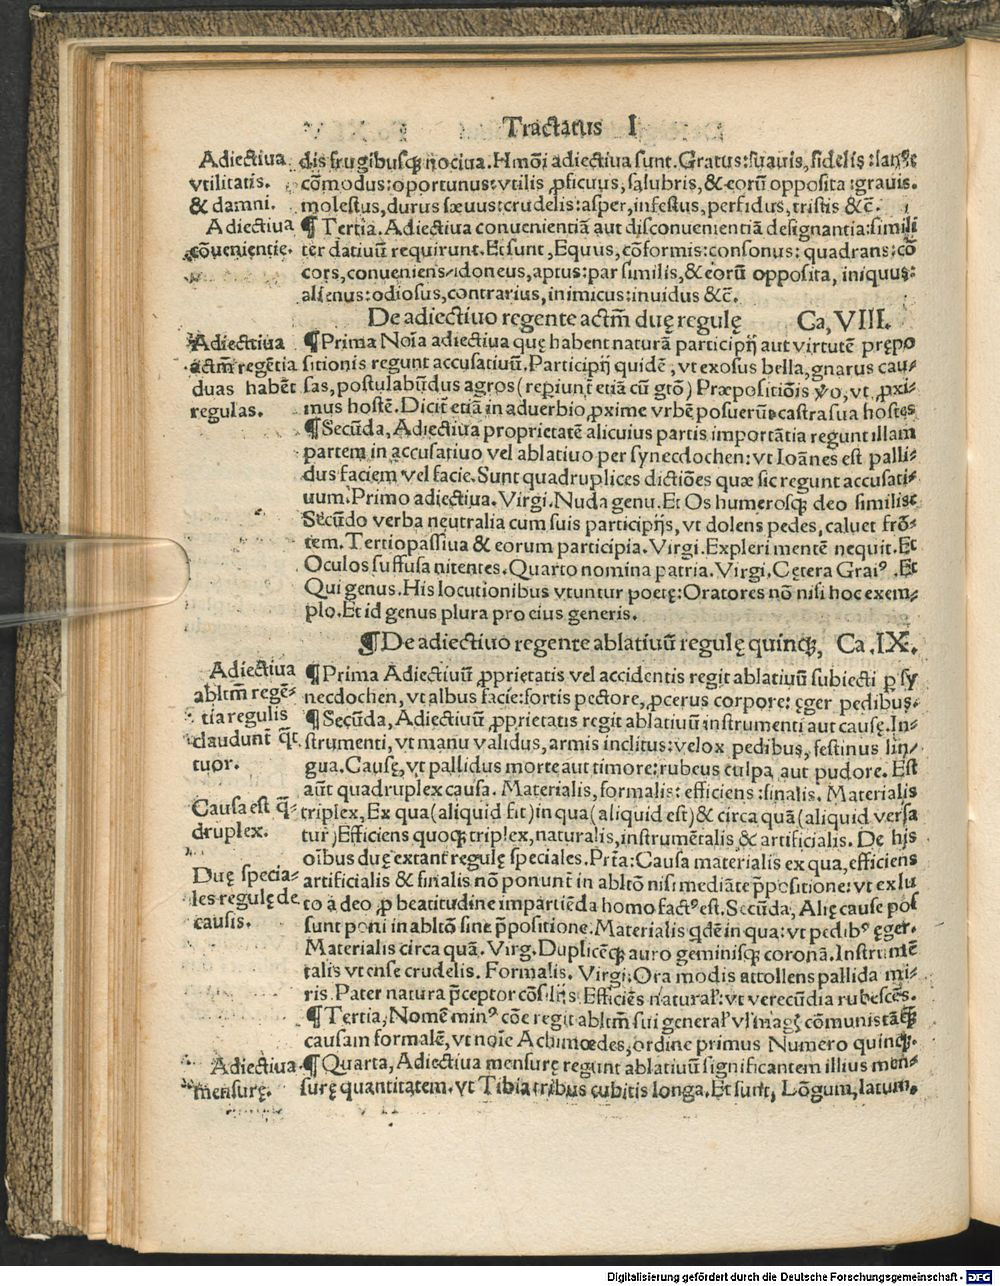 Tractatus I
Adiectiua
vtilitatis.
& damni.
dis frugibusq̃ nociua. Hmõi adiectiua sunt. Gratus: suauis, fidelis :
cõmodus: oportunus: vtilis ꝓficuus, salubris, & eorũ opposita : grauis.
molestus, durus sæuus: crudelis: asper, infestus, perfidus, tristis &c̃.
Adiectiua
cõuenientię.
¶ Tertia. Adiectiua conuenientiã aut disconuenientiã designantia: simili
ter datiuũ requirunt. Et sunt, Equus, cõformis: consonus: quadrans: cõ
cors, conueniens, idoneus, aptus: par similis, & eorũ opposita, iniquus:
alienus: odiosus, contrarius, inimicus: inuidus &c̃.
De adiectiuo regente actm̃ duę regulę Ca, VIII.
Adiectiua
actm̃ regẽtia
duas habẽt
regulas.
¶ Prima Noĩa adiectiua quę habent naturã participij aut virtutẽ prępo
sitionis regunt accusatiuũ. Participij quidẽ, vt exosus bella, gnarus cau⸗
sas, postulabũdus agros (repiunt̃ etiã cũ gtõ) Præpositiõis ꝟo, vt ꝓxi⸗
mus hostẽ. Dicit̃ etiã in aduerbio, ꝓxime vrbẽ posuerũt castra sua hostes
¶ Secũda, Adiectiua proprietatẽ alicuius partis importãtia regunt illam
partem in accusatiuo vel ablatiuo per synecdochen: vt Ioãnes est palli⸗
dus faciem vel facie. Sunt quadruplices dictiões quæ sic regunt accusati⸗
uum. Primo adiectiua. Virgi. Nuda genu. Et Os humerosq̃ deo similis:
Secũdo verba neutralia cum suis participijs, vt dolens pedes, caluet frõ⸗
tem. Tertio passiua & eorum participia. Virgi. Expleri mentẽ nequit. Et
Oculos suffusa nitentes. Quarto nomina patria. Virgi. Cętera Graiꝰ . Et
Qui genus. His locutionibus vtuntur poetę: Oratores nõ nisi hoc exem⸗
plo. Et id genus plura pro eius generis.
¶ De adiectiuo regente ablatiuũ regulę quinq̃, Ca .IX.
Adiectiua
abltm̃ regẽ⸗
tia regulis
claudunt̃ q̃t
tuor.
¶ Prima Adiectiuũ ꝓprietatis vel accidentis regit ablatiuũ subiecti ꝑ sy
necdochen, vt albus facie: fortis pectore, ꝓcerus corpore: ęger pedibus.
¶ Secũda, Adiectiuũ ꝓprietatis regit ablatiuũ instrumenti aut causę. In⸗
strumenti, vt manu validus, armis inclitus: velox pedibus, festinus lin⸗
gua. Causę, vt pallidus morte aut timore: rubeus culpa aut pudore. Est
aũt quadruplex causa. Materialis, formalis: efficiens : finalis. Materialis
Causa est q̃⸗
druplex.
triplex, Ex qua (aliquid fit) in qua (aliquid est) & circa quã (aliquid versa
tur) Efficiens quoq̃ triplex, naturalis, instrumẽtalis & artificialis. De hijs
oĩbus duę extant regulę speciales. Prĩa: Causa materialis ex qua, efficiens
Duę specia⸗
les regulę de
causis.
artificialis & finalis nõ ponunt̃ in abltõ nisi mediãte p̃positione: vt ex lu
to a deo ꝓ beatitudine impartiẽda homo factꝰ est. Secũda, Alię cause pos
sunt poni in abltõ sine p̃positione. Materialis qdẽ in qua: vt pedibꝰ ęger.
Materialis circa quã. Virg. Duplicẽq̃ auro geminisq̃ coronã. Instrumẽ
talis vt ense crudelis. Formalis. Virgi. Ora modis attollens pallida mi⸗
ris. Pater natura p̃ceptor cõsilijs Efficiẽs natural̃: vt verecũdia rubescẽs.
¶ Tertia, Nomẽ minꝰ cõe regit abltm̃ sui
causam formalẽ, vt noĩe Achimœdes, ordine primus Numero quinq̃.
Adiectiua
mensurę.
¶ Quarta, Adiectiua mensurę regunt ablatiuũ significantem illius men⸗
surę quantitatem. vt Tibia tribus cubitis longa. Et sunt, Lõgum, latum,
Digitalisierung gefördert durch die Deutsche Forschungsgemeinschaft - DFG